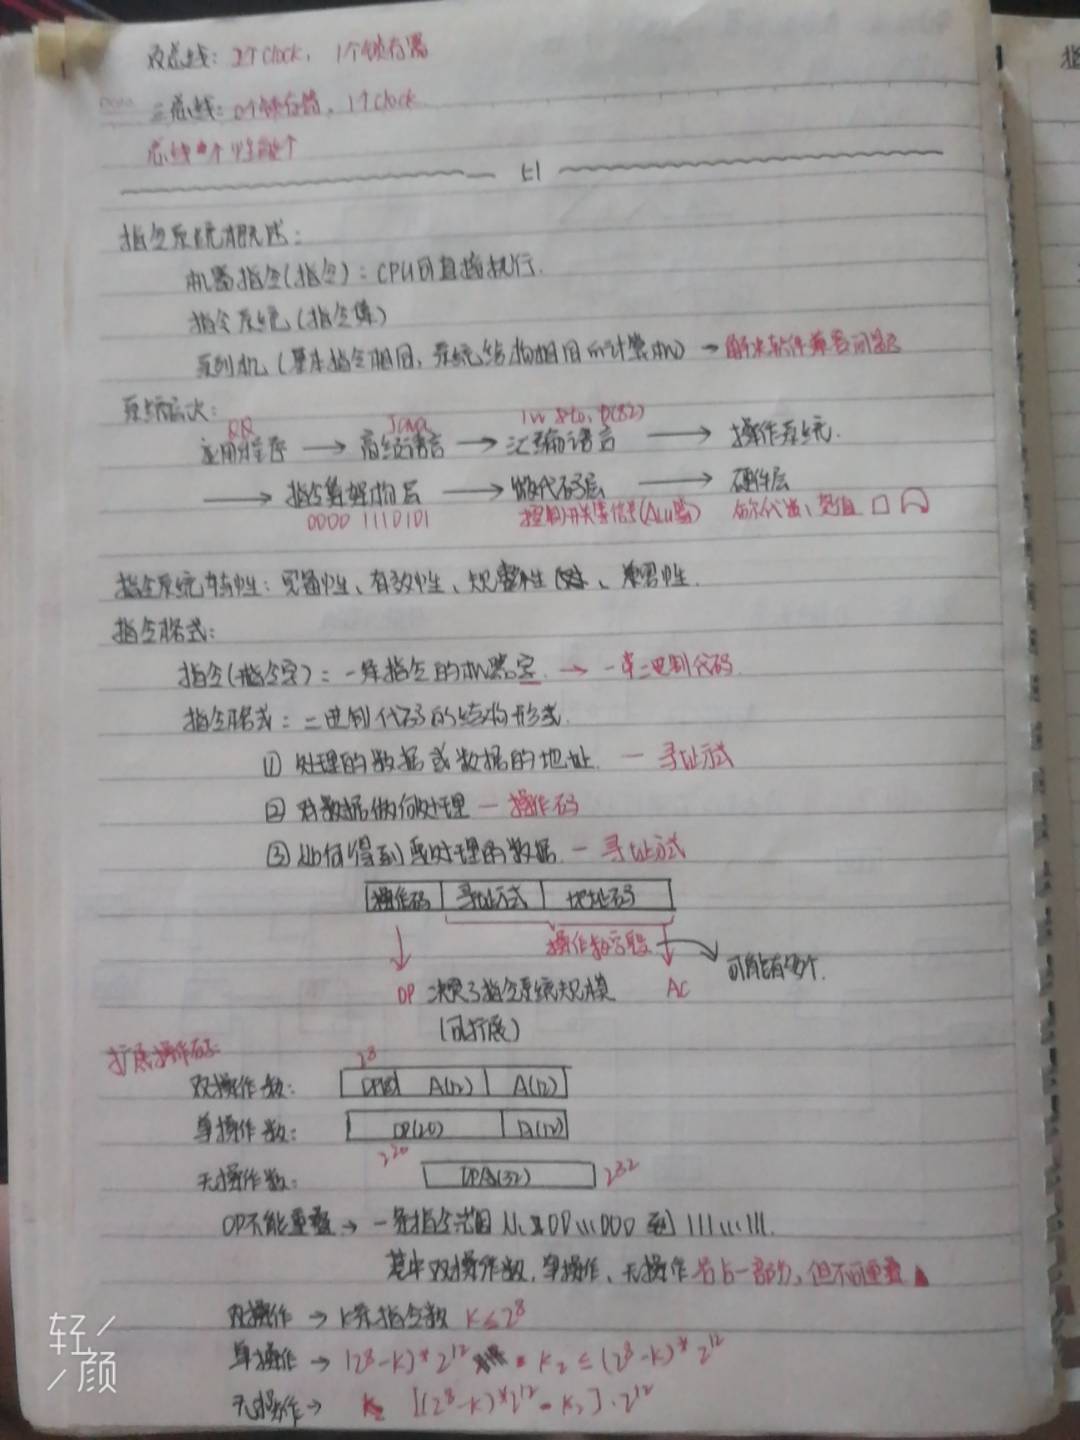 双总线：2个clock，1个锁存器
三总线：0个锁存器，1个clock
总线↑性能↑
5.1
指令系统概述：
机器指令(指令)：CPU可直接执行.
指令系统(指令集)
系列机(基本指令相同，系统结构相同的计算机) → 解决软件兼容问题
系统层次：
QQ Java lw $t0, 0($2)
应用程序 → 高级语言 → 汇编语言 → 操作系统.
→ 指令集架构层 → 微代码层 → 硬件层
0000 1110101 控制开关等信号(ALU等) 布尔代数、
指令系统特性：完备性、有效性、规整性、兼容性.
指令格式：
指令(指令字)：一条指令的机器字. → 一串二进制代码
指令格式：二进制代码的结构形式.
① 处理的数据或数据的地址. — 寻址方式
② 对数据做何处理 — 操作码
③ 如何得到要处理的数据. — 寻址方式
操作码 寻址方式 地址码
操作数字段 可能有多个.
OP 决定了指令系统规模 AC
(可扩展)
扩展操作码: 2^8
双操作数： OP(8) A(12) A(12)
单操作数： OP(20) A(12)
2^20
无操作数： OP(32) 2^32
OP不能重叠 → 一条指令范围 从 00...000 到 111...111.
其中双操作数,单操作、无操作各占一部分，但不可重叠
双操作 → K条指令数 K≤2^8
单操作 → (2^8-K)*2^12 K₂ ≤ (2^8-K)*2^12
无操作 → [(2^8-K)*2^12 - K₂]·2^12
轻颜